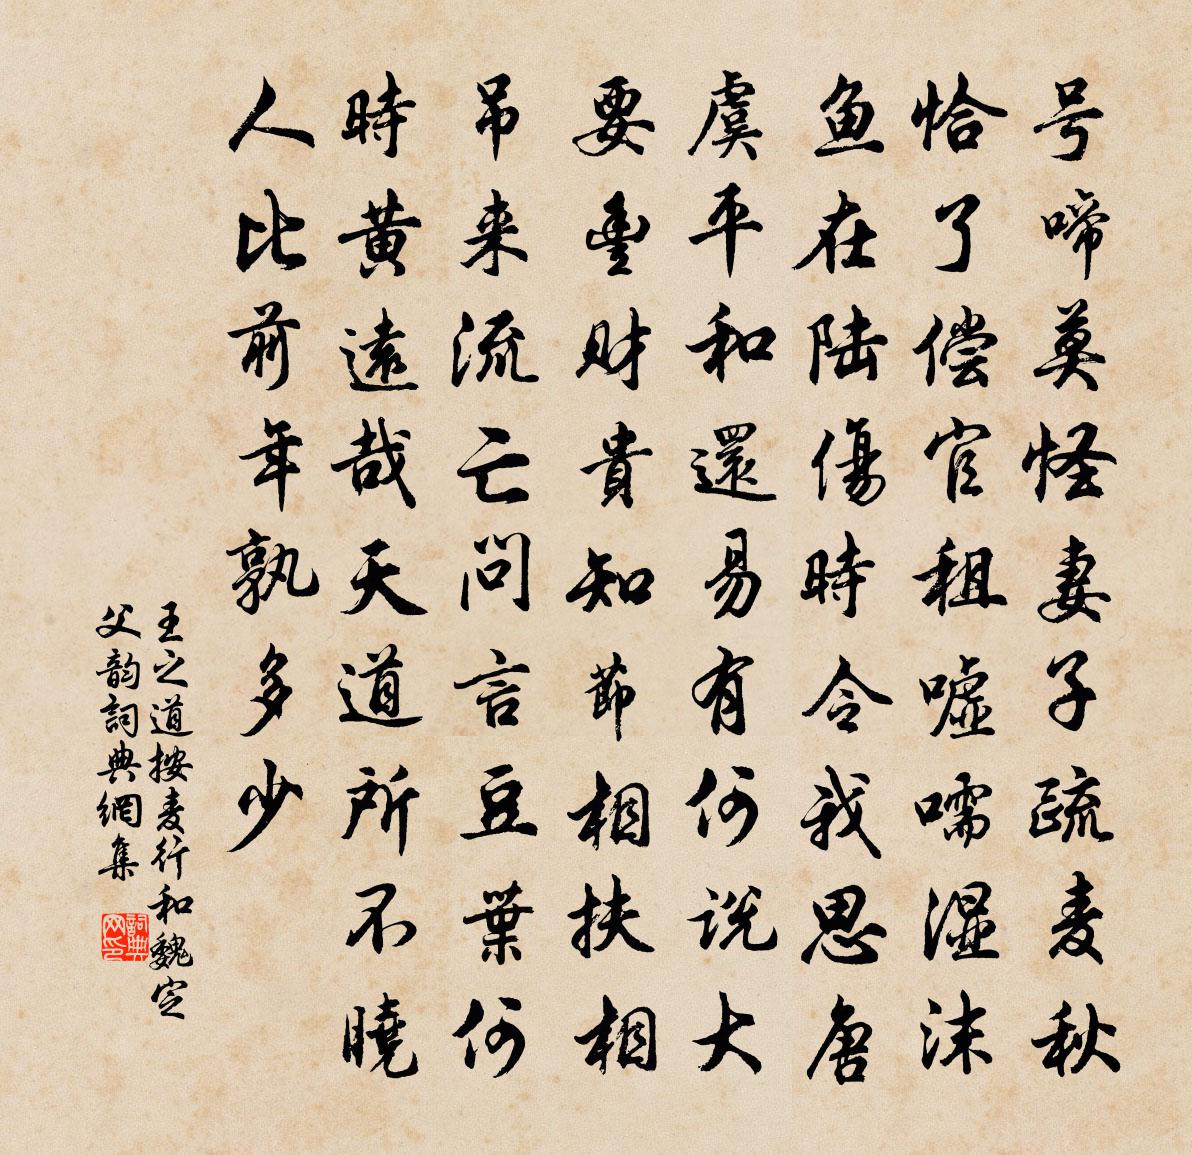 号啼莫怪妻子疏麦秋
恰了偿官租嘘嚅湿沫
鱼在陆伤時令我思唐
虞平和還易有何说大
要豊财貴知節相扶相
吊来流亡问言豆葉何
時黄遠哉天道所不曉
人比前年孰多少
王之道按麦行和魏定
父韵詞典網集
詞典网印